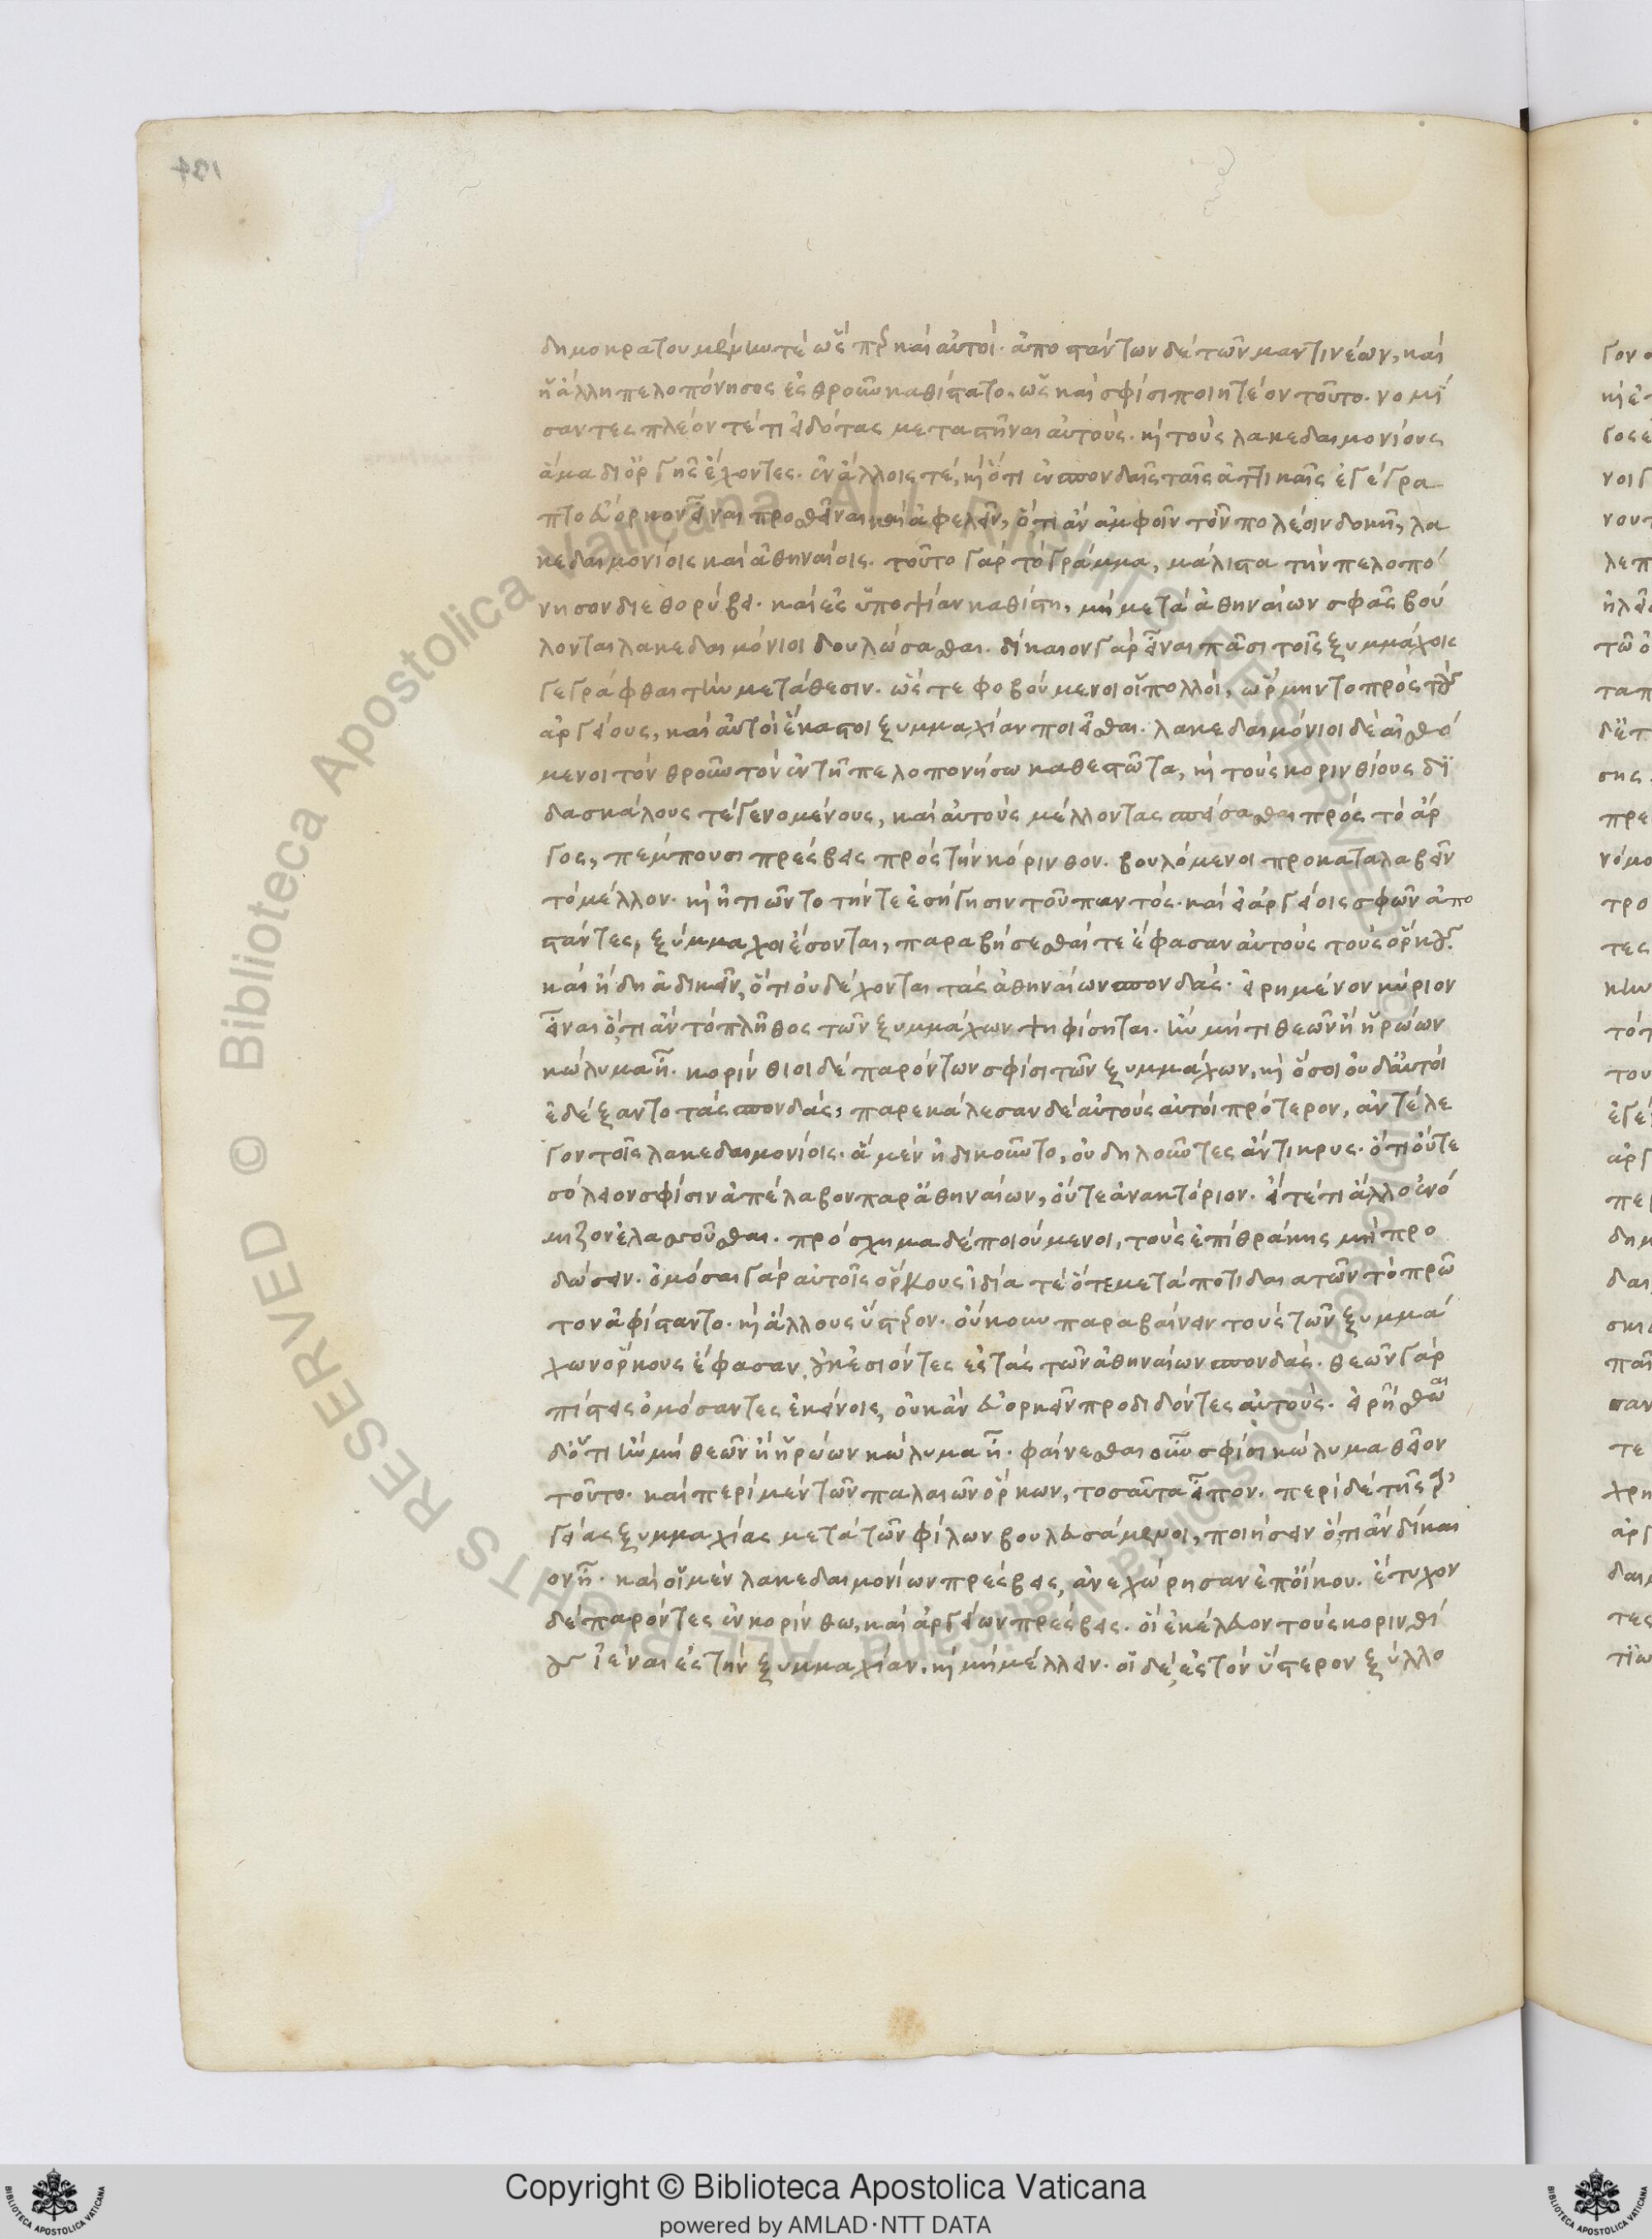 δημοκρατουμένην τέ ὥσπερ καὶ αὐτοί. ἀποστάντων δὲ τῶν μαντινέων, καὶ
ἡ ἄλλη πελοπόνησος ἐς θροῦν καθίστατο. ὡς καὶ σφίσι ποιητέον τοῦτο. νομί
σαντες πλέον τέ τι εἰδότας μεταστῆναι αὐτούς. καὶ τοὺς λακεδαιμονίους
ἅμα δι ὀργῆς ἔχοντες. ἐν ἄλλοις τέ, καὶ ὅτι ἐν σπονδαῖς ταῖς ἀττικαῖς ἐγέγρα
πτο εὔορκον εἶναι προσθεῖναι καὶ ἀφελεῖν, ὅ,τι ἂν ἀμφοῖν τοῖν πολέοιν δοκῆ, λα
κεδαιμονίοις καὶ ἀθηναίοις. τοῦτο γὰρ τὸ γράμμα, μάλιστα τὴν πελοπό
νησον διεθορύβει. καὶ ἐς ὑποψίαν καθίστη, μὴ μετὰ ἀθηναίων σφᾶς βού
λονται λακεδαιμόνιοι δουλώσασθαι. δίκαιον γὰρ εἶναι πᾶσι τοῖς ξυμμάχοις
γεγράφθαι τὴν μετάθεσιν. ὥστε φοβούμενοι οἱ πολλοί, ὥρμηντο πρὸς τοὺς
ἀργείους, καὶ αὐτοὶ ἕκαστοι ξυμμαχίαν ποιεῖσθαι. λακεδαιμόνιοι δὲ αἰσθό
μενοι τὸν θροῦν τὸν ἐν τῆ πελοπονήσω καθεστῶτα, καὶ τοὺς κορινθίους δι
δασκάλους τὲ γενομένους, καὶ αὐτοὺς μέλλοντας σπείσασθαι πρὸς τὸ ἄρ
γος, πέμπουσι πρέσβεις πρὸς τὴν κόρινθον. βουλόμενοι προκαταλαβεῖν
τὸ μέλλον. καὶ ἠτιῶντο τήν τε ἐσήγησιν τοῦ παντός. καὶ εἰ ἀργείοις σφῶν ἀπο
στάντες, ξύμμαχοι ἔσονται, παραβήσεσθαί τε ἔφασαν αὐτοὺς τοὺς ὅρκους.
καὶ ἤδη ἀδικεῖν, ὅτι οὐ δέχονται τὰς ἀθηναίων σπονδάς. εἰρημένον κύριον
εἶναι ὅ,τι ἂν τὸ πλῆθος τῶν ξυμμάχων ψηφίσηται. ἢν μή τι θεῶν ἢ ἡρώων
κώλυμα ἦ. κορίνθιοι δὲ παρόντων σφίσι τῶν ξυμμάχων, καὶ ὅσοι οὐδ αὐτοὶ
ἐδέξαντο τὰς σπονδάς, παρεκάλεσαν δὲ αὐτοὺς αὐτοὶ πρότερον, ἀντέλε
γον τοῖς λακεδαιμονίοις. ἃ μὲν ἠδικοῦντο, οὐ δηλοῦντες ἄντικρυς. ὅτι οὔτε
σόλειον σφίσιν ἀπέλαβον παρ ἀθηναίων, οὔτε ἀνακτόριον. εἴ τέ τι ἄλλο ἐνό
μιζον ἐλασσοῦσθαι. πρόσχημα δὲ ποιούμενοι, τοὺς ἐπὶ θράκης μὴ προ
δώσειν. ὀμόσαι γὰρ αὐτοῖς ὅρκους ἰδία τὲ ὅτε μετὰ ποτιδαιατῶν τὸ πρῶ
τον ἀφίσταντο. καὶ ἄλλους ὕστερον. οὔκουν παραβαίνειν τοὺς τῶν ξυμμά
χων ὅρκους ἔφασαν, οὐκ ἐσιόντες ἐς τὰς τῶν ἀθηναίων σπονδάς. θεῶν γὰρ
πίστεις ὀμόσαντες ἐκείνοις, οὐκ ἂν εὐορκεῖν προδιδόντες αὐτούς. εἰρῆσθαι
δ ὅτι ἢν μὴ θεῶν ἢ ἡρώων κώλυμα ἦ. φαίνεσθαι οὖν σφίσι κώλυμα θεῖον
τοῦτο. καὶ περὶ μὲν τῶν παλαιῶν ὅρκων, τοσαῦτα εἶπον. περὶ δὲ τῆς ἀρ
γείας ξυμμαχίας μετὰ τῶν φίλων βουλευσάμενοι, ποιήσειν ὅ,τι ἂν δίκαι
ον ἦ. καὶ οἱ μὲν λακεδαιμονίων πρέσβεις, ἀνεχώρησαν ἐπ οἴκου. ἔτυχον
δὲ παρόντες ἐν κορίνθω, καὶ ἀργείων πρέσβεις. οἳ ἐκέλευον τοὺς κορινθί
ους ἰέναι ἐς τὴν ξυμμαχίαν. καὶ μὴ μέλλειν. οἱ δὲ, ἐς τὸν ὕστερον ξύλλο
Copyright © Biblioteca Apostolica Vaticana
powered by AMLAD·NTT DATA